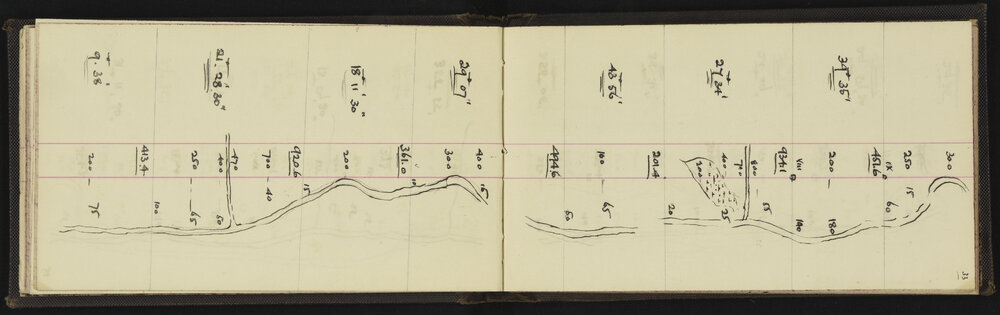 33
300
250 15
IX
34° 35' 451.6 60
200 — 180
VIII 140
934.1
800 55
710
27° 34' 400 25
200
201.4 20
43° 56' 100 65
494.6 60
400 15
24° 07' 300
361.0 10
18° 11' 30" 200
920.6 15
700 — 40
470
21° 28' 30" 400 50
250 — 65
100
413.4
9° 38' 200 — 75